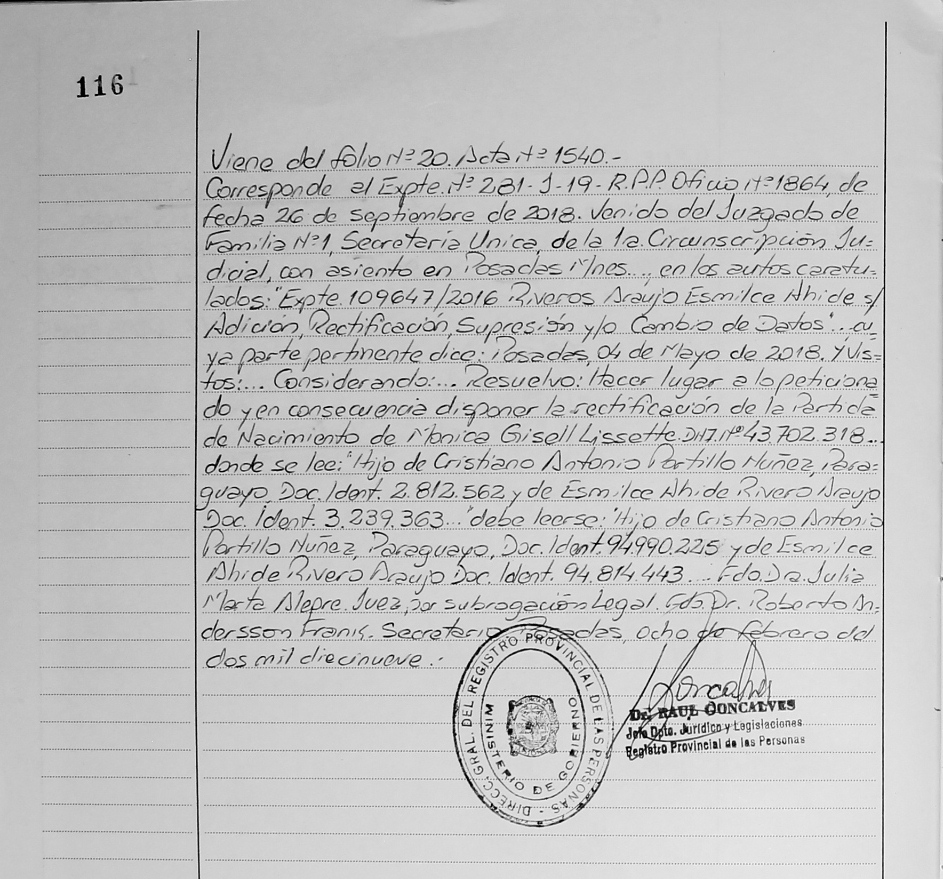 116
Viene del folio Nº 20. Acta Nº 1540.-
Corresponde al Expte. Nº 281-J-19-R.P.P. Oficio Nº 1864, de
fecha 26 de septiembre de 2018. Venido del Juzgado de
Familia Nº1, Secretaría Unica, de la 1a. Circunscripción Ju-
dicial, con asiento en Posadas Mnes..., en los autos caratu-
lados: "Expte. 109647/2016 Riveros Araujo Esmilce Ahide s/
Adición, Rectificación, Supresión y/o Cambio de Datos"... cu-
ya parte pertinente dice: Posadas, 04 de Mayo de 2018. Y Vis-
tos:... Considerando:... Resuelvo: Hacer lugar a lo peticiona
do y en consecuencia disponer la rectificación de la Partida
de Nacimiento de Monica Gisell Lissette. DNI. Nº 43.702.318...
donde se lee: "Hijo de Cristiano Antonio Portillo Nuñez Para-
guayo, Doc. Ident. 2.812.562 y de Esmilce Ahide Rivero Araujo
Doc. Ident. 3.239.363..." debe leerse: "Hijo de Cristiano Antonio
Portillo Nuñez, Paraguayo, Doc. Ident. 94.990.225 y de Esmilce
Ahide Rivero Araujo Doc. Ident. 94.814.443... Fdo. Dra. Julia
Marta Alegre. Juez, por subrogación Legal. Fdo. Dr. Roberto An-
dersson Frank. Secretario. Posadas, ocho de febrero del
dos mil diecinueve.-
DIRECC. GRAL. DEL REGISTRO PROVINCIAL DE LAS PERSONAS -
MINISTERIO DE GOBIERNO
Goncalves
Dr. RAUL GONCALVES
Jefe Dpto. Jurídico y Legislaciones
Registro Provincial de las Personas